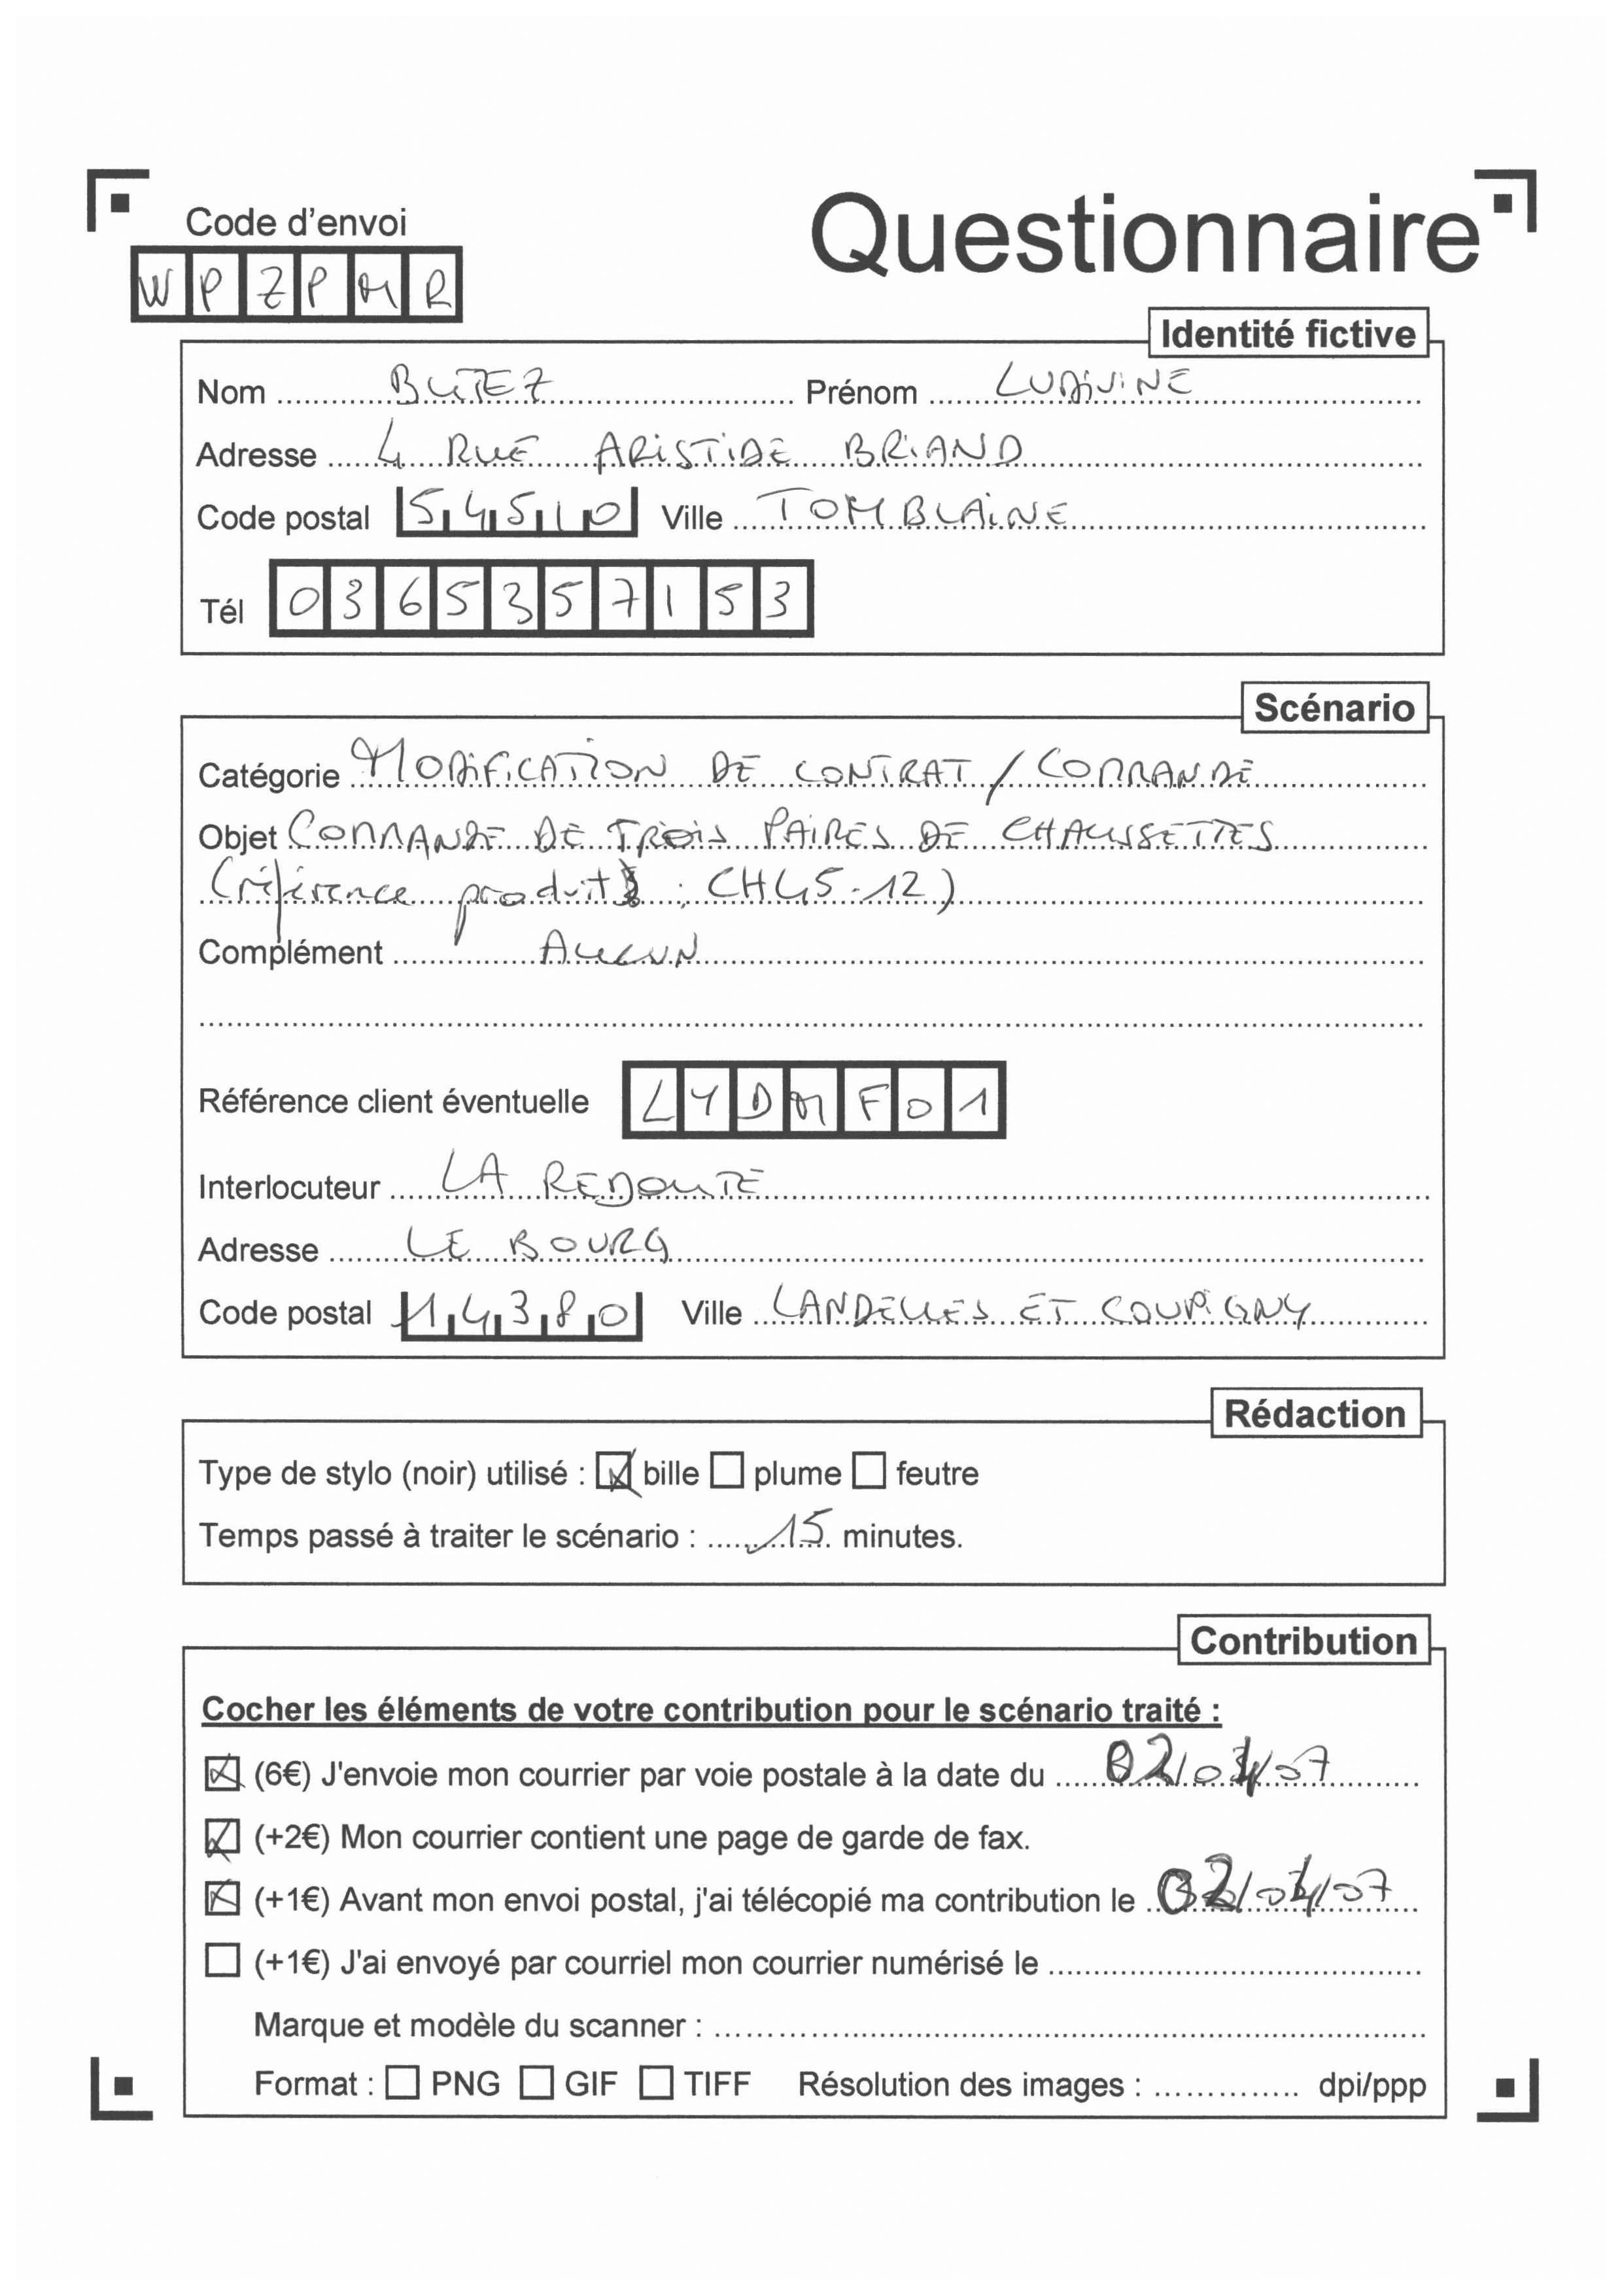 Code d'envoi
Questionnaire
WPZPMR
Identité fictive
Nom BUTEZ Prénom LUDIVINE
Adresse 4 RUE ARISTIDE BRIAND
Code postal 54510 Ville TOMBLAINE
Tél 0365357153
Scénario
Catégorie MODIFICATION DE CONTRAT / COMMANDE
Objet COMMANDE DE TROIS PAIRES DE CHAUSSETTES
(référence produit : CH45-12)
Complément AUCUN
Référence client éventuelle LYDMF01
Interlocuteur LA REDOUTE
Adresse LE BOURG
Code postal 14380 Ville LANDELLES ET COUPIGNY
Rédaction
Type de stylo (noir) utilisé : bille plume feutre
Temps passé à traiter le scénario : 15 minutes.
Contribution
Cocher les éléments de votre contribution pour le scénario traité :
(6€) J'envoie mon courrier par voie postale à la date du
(+2€) Mon courrier contient une page de garde de fax.
(+1€) Avant mon envoi postal, j'ai télécopié ma contribution le
(+1€) J'ai envoyé par courriel mon courrier numérisé le
Marque et modèle du scanner :
Format : PNG GIF TIFF Résolution des images : dpi/ppp